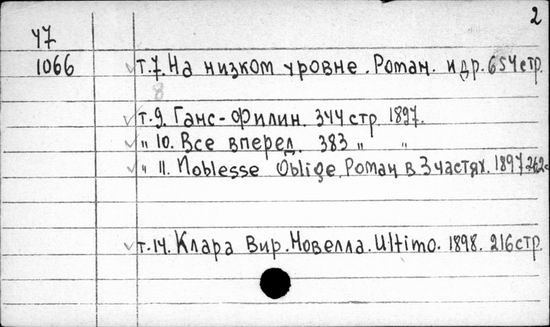 2
У7
1066
т.7. На низком уровне. Роман. и др. 654 стр.
8
т.9. Ганс-Филин. 344 стр. 1897.
" 10. Все вперед. 383 " "
" 11. Noblesse Oblige. Роман в 3 частях. 1897. 262 с
т.14. Клара Вир. Новелла. Ultimo. 1898. 216 стр.